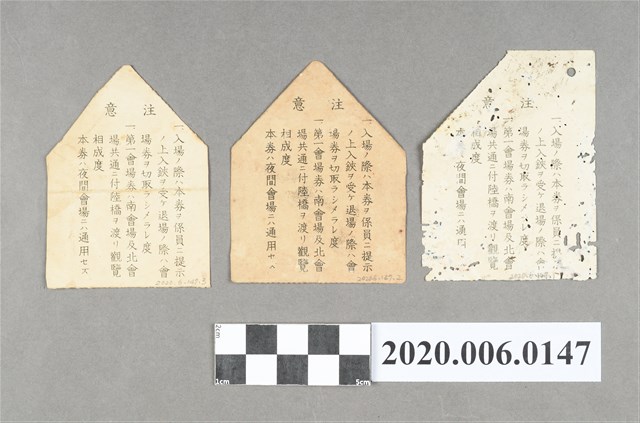 注意
一、入場ノ際ハ本券ヲ係員ニ提示
ノ上入鋏ヲ受ケ退場ノ際ハ會
場券ヲ切取ラシメラレ度
一、第一會場券ハ南會場及北會
場共通ニ付陸橋ヲ渡リ觀覽
相成度
本券ハ夜間會場ニハ通用セズ
2020.6.147.3
注意
一、入場ノ際ハ本券ヲ係員ニ提示
ノ上入鋏ヲ受ケ退場ノ際ハ會
場券ヲ切取ラシメラレ度
一、第一會場券ハ南會場及北會
場共通ニ付陸橋ヲ渡リ觀覽
相成度
本券ハ夜間會場ニハ通用セ
2020.6.147.2
注意
一、入場ノ際ハ本券ヲ係員ニ提示
ノ上入鋏ヲ受ケ退場ノ際ハ會
場券ヲ切取ラシメラレ度
一、第一會場券ハ南會場及北會
場共通ニ付陸橋ヲ渡リ觀覽
相成度
券ハ夜間會場ニハ通
2cm
1cm
5cm
2020.006.0147